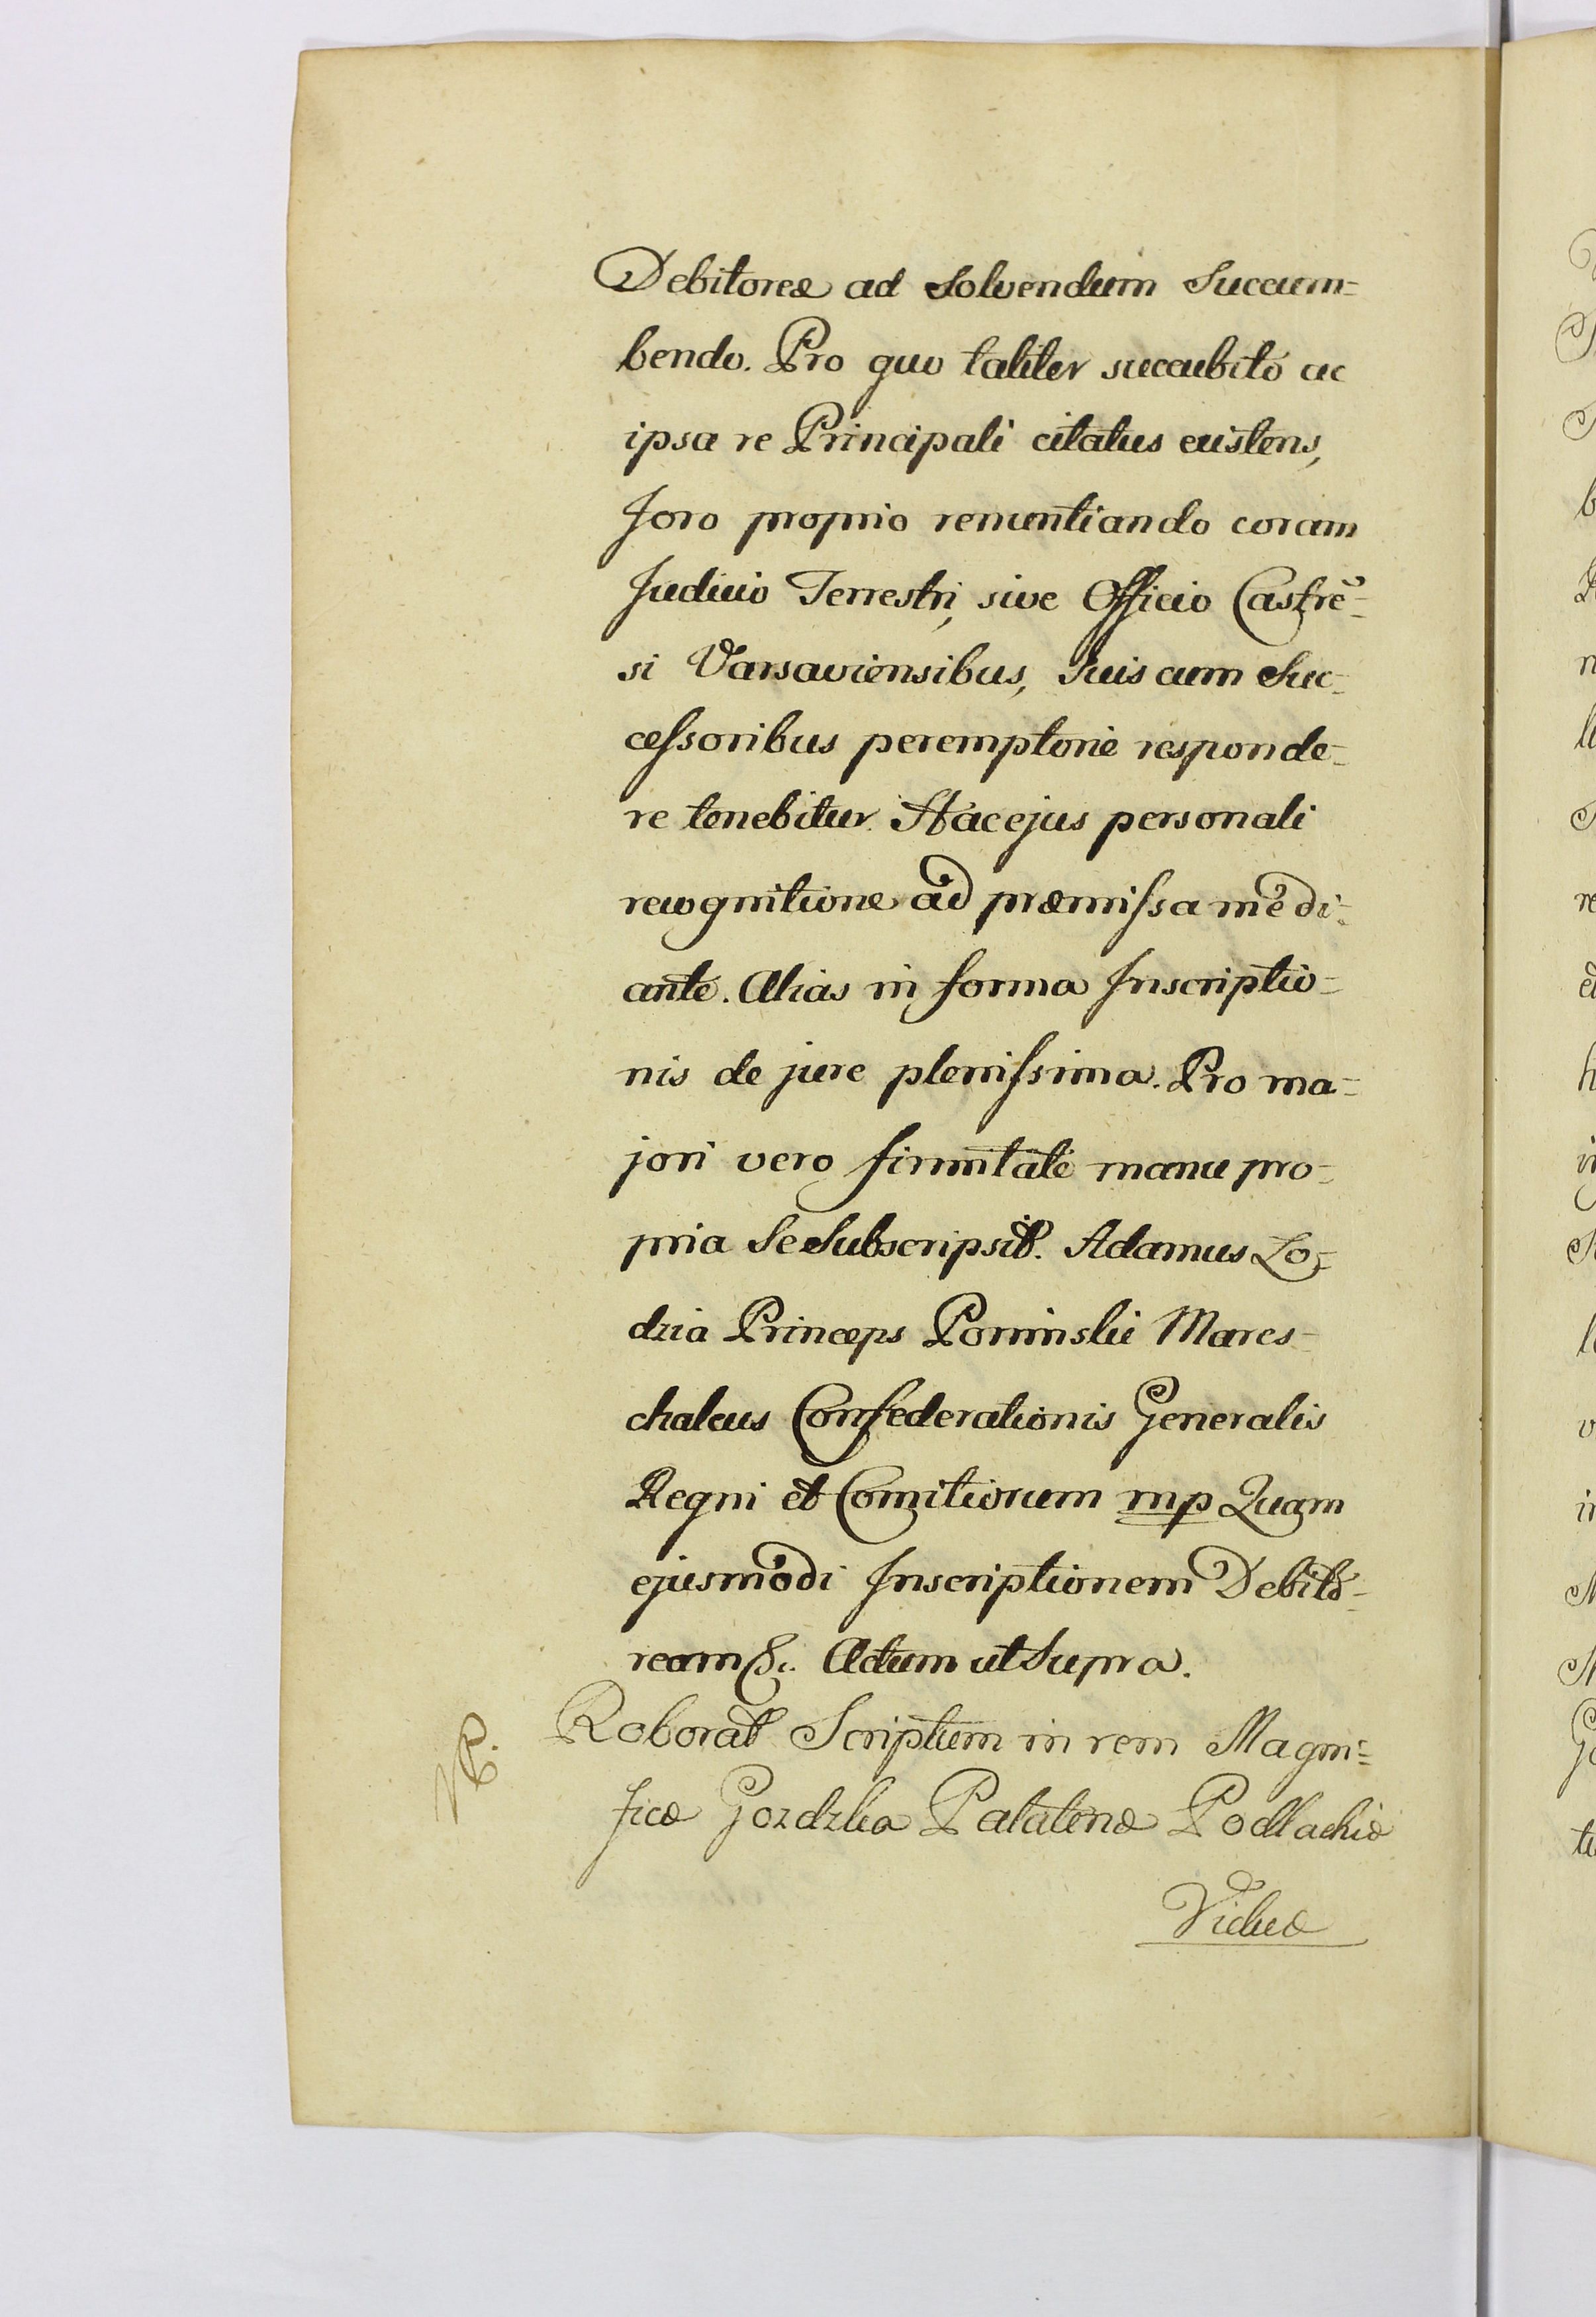 Debitoreæ ad Solvendum Succum=
bendo. Pro quo taliter succubito ac
ipsa re Principali citatus existens,
foro proprio renuntiando coram
Judicio Terrestri, sive Officio Castrē=
si Varsaviensibus, Suis cum Suc=
cessoribus peremptorie responde=
re tenebitur. Hac ejus personali
recognitione ad præmissa medi=
ante. Alias in forma Inscriptio=
nis de jure plenissima. Pro ma=
jori vero firmitate manu pro=
pria Se Subscripsit. Adamus Lo=
dzia Princeps Poninskii Mares=
chalcus Confederationis Generalis
Regni et Comitiorum mp Quam
ejusmodi Inscriptionem Debito=
ream &c. Actum ut Supra.
Roborat Scriptum in rem Magni=
ficæ Gozdzka Palatinæ Podlachiæ
Viduæ